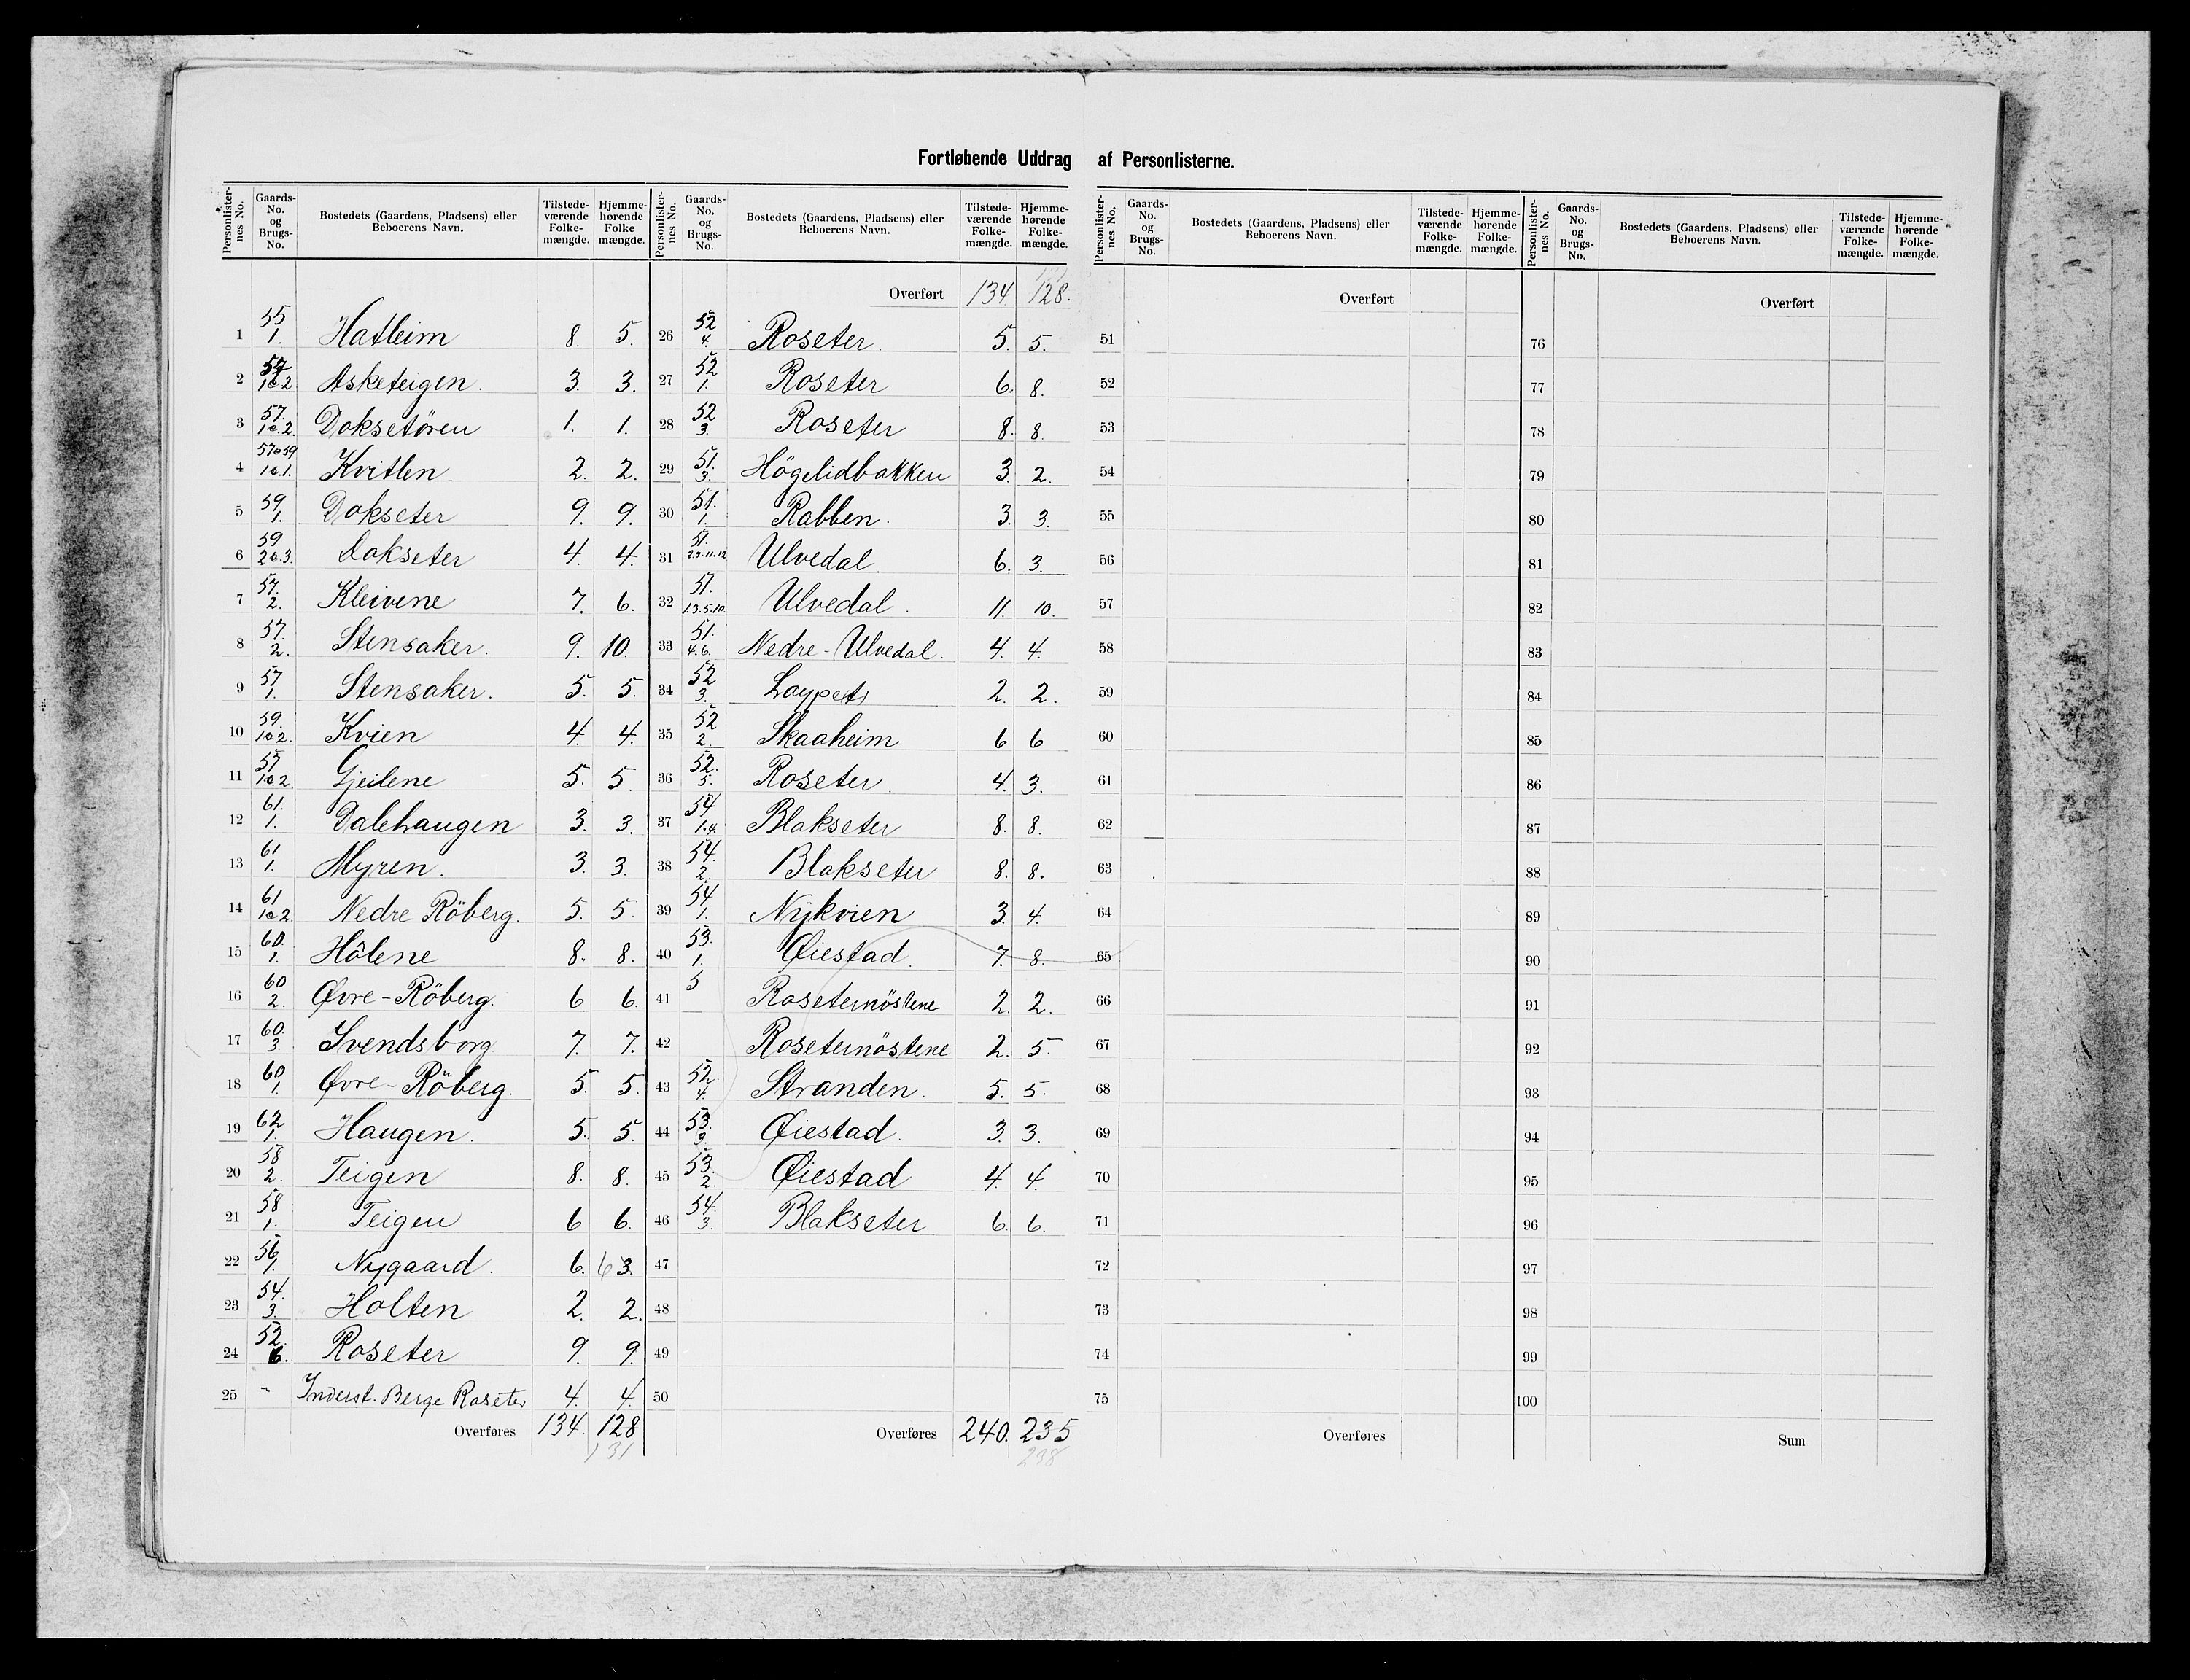 Fortløbende Uddrag af Personlisterne.
Personlisternes No. Gaards-No. og Brugs-No. Bostedets (Gaardens, Pladsens) eller Beboerens Navn. Tilstedeværende Folkemængde. Hjemmehørende Folkemængde.
1 55 1. Hatleim 8. 5.
2 57 1 o 2 Asketeigen. 3. 3.
3 57. 1 o. 2. Doksetören 1. 1.
4 57 o 59 1 o. 1. Kvitlen 2. 2.
5 59 1. Dokseter 9. 9.
6 59 2 o. 3. Dokseter 4. 4.
7 57. 2. Kleivene 7. 6.
8 57. 2. Stensaker. 9. 10.
9 57 1. Stensaker. 5. 5.
10 59. 1 o 2. Kvien 4. 4.
11 57 1 o 2. Gjeilene 5. 5.
12 61. 1. Dalehaugen 3. 3.
13 61 1. Myren. 3. 3.
14 61 1 o 2. Nedre Röberg. 5. 5.
15 60. 1. Hôlene 8. 8.
16 60 2. Øvre-Röberg. 6 6.
17 60. 3. Svendsborg 7. 7.
18 60 1. Øvre-Röberg. 5. 5.
19 62 1. Haugen. 5. 5.
20 58 2. Teigen 8. 8.
21 58 1. Teigen 6 6.
22 56 1. Nygaard. 6. 6 3.
23 54. 3. Holten 2. 2.
24 52. 6. Roseter 9. 9.
25 - Inderst. Berge Roseter 4. 4.
Overføres 134. 128
131
Personlisternes No. Gaards-No. og Brugs-No. Bostedets (Gaardens, Pladsens) eller Beboerens Navn. Tilstedeværende Folkemængde. Hjemmehørende Folkemængde.
Overført 134. 128.
26 52 4. Roseter. 5. 5.
27 52 1. Roseter 6. 8.
28 52 3. Roseter 8. 8.
29 51. 3. Högelidbakken 3. 2.
30 51. 1. Rabben. 3. 3.
31 51. 2.7.11.12 Ulvedal 6. 3.
32 51. 1.3.5.10. Ulvedal. 11. 10.
33 51. 4.6. Nedre-Ulvedal. 4. 4.
34 52 3. 2. 2.
35 52 2. Skaaheim 6 6
36 52. 5. Roseter. 4. 3.
37 54 1.4. Blakseter 8. 8.
38 54. 2. Blakseter 8. 8.
39 54 1. Nykvien 3. 4.
40 53. 1. Øiestad. 7. 8.
41 5 Roseternöstene 2. 2.
42 Roseternöstene 2. 5.
43 52. 4. Stranden. 5. 5.
44 53. 3. Øiestad. 3. 3.
45 53. 2. Øiestad 4. 4.
46 54. 3. Blakseter 6. 6.
47
48
49
50
Overføres 240. 235
238
Personlisternes No. Gaards-No. og Brugs-No. Bostedets (Gaardens, Pladsens) eller Beboerens Navn. Tilstedeværende Folkemængde. Hjemmehørende Folkemængde.
Overført
51
52
53
54
55
56
57
58
59
60
61
62
63
64
65
66
67
68
69
70
71
72
73
74
75
Overføres
Personlisternes No. Gaards-No. og Brugs-No. Bostedets (Gaardens, Pladsens) eller Beboerens Navn. Tilstedeværende Folkemængde. Hjemmehørende Folkemængde.
Overført
76
77
78
79
80
81
82
83
84
85
86
87
88
89
90
91
92
93
94
95
96
97
98
99
100
Sum